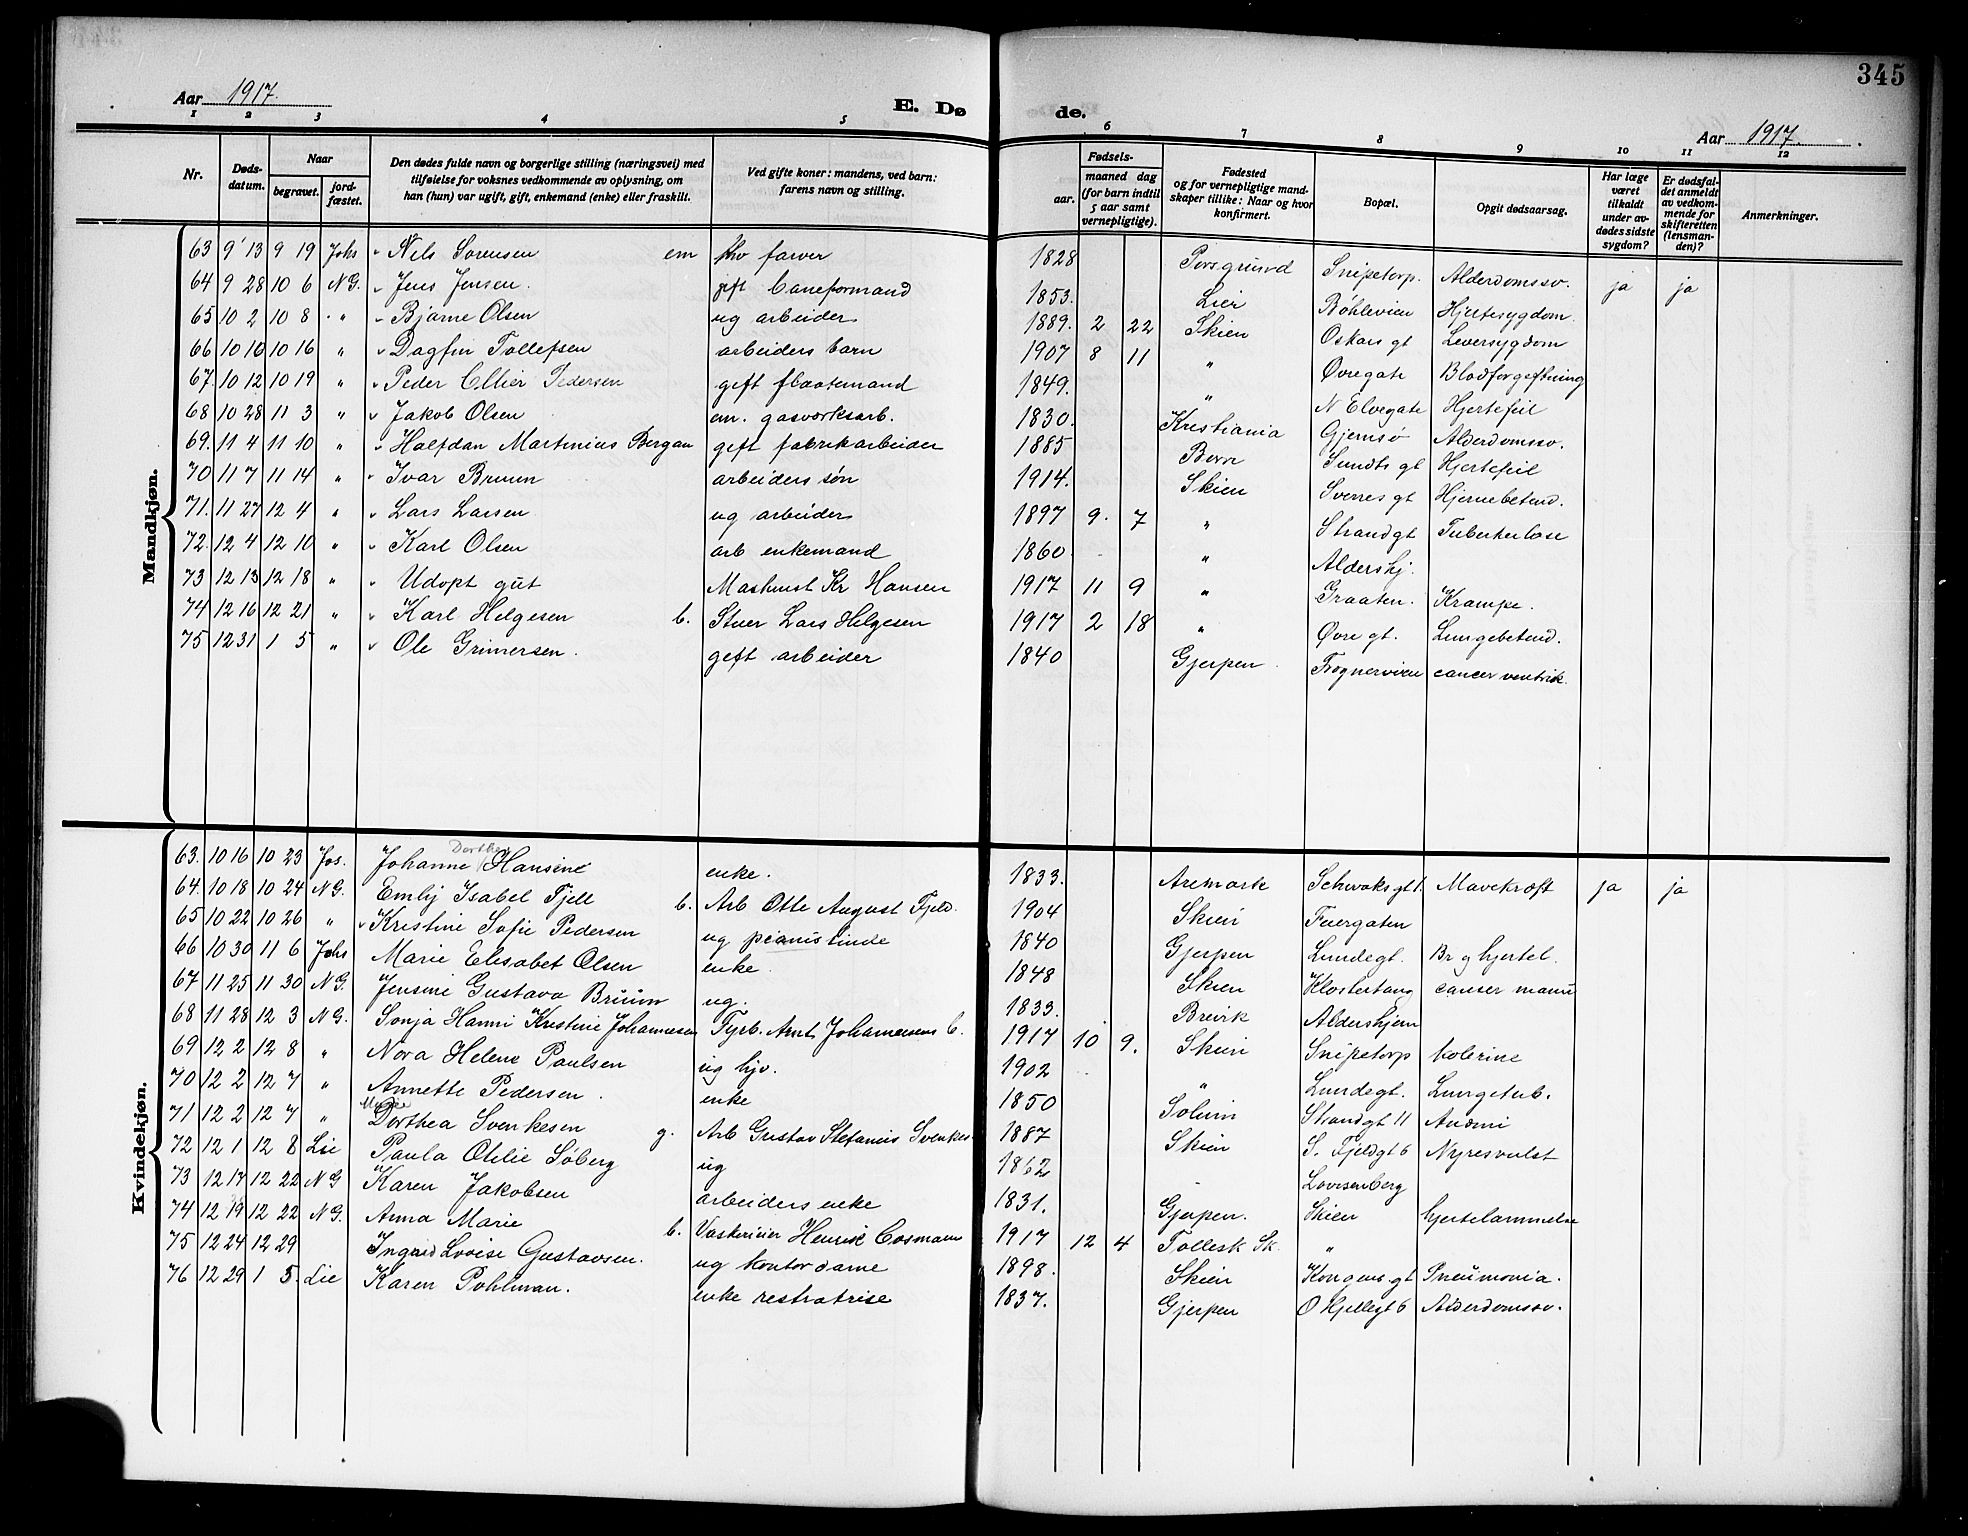 345
Aar 1917. E. Dø de. Aar 1917.
1 2 3 4 5 6 7 8 9 10 11 12
Nr. Døds-datum. Naar begravet. jord-fæstet. Den dødes fulde navn og borgerlige stilling (næringsvei) med tilføielse for voksnes vedkommende av oplysning, om han (hun) var ugift, gift, enkemand (enke) eller fraskilt. Ved gifte koner: mandens, ved barn: farens navn og stilling. Fødsels- aar. maaned dag (for barn indtil 5 aar samt vernepligtige). Fødested og for vernepligtige mand-skaper tillike: Naar og hvor konfirmert. Bopæl. Opgit dødsaarsag. Har læge været tilkaldt under av-dødes sidste sygdom? Er dødsfal-det anmeldt av vedkom-mende for skifteretten (lensman-den)? Anmerkninger.
Mandkjøn.
63 9 13 9 19 Johs Nils Sørensen em fhv farver 1828 Porsgrund Snipetorp. Alderdomssv. ja ja
64 9 28 10 6 N.G. Jens Jensen. gift baneformand 1853. Lier Bøhlevien Hjertesygdom.
65 10 2 10 8 " Bjarne Olsen ug arbeider 1889. 2 22 Skien Oskars gt Leversygdom
66 10 10 10 16 " Dagfin Tollefsen arbeiders barn 1907 8 11 " Øvregate Blodforgiftning
67. 10 12 10 19 " Peder Pedersen gift flaatemand 1849. " N Elvegate Hjertefeil
68 10 28 11 3 " Jakob Olsen em. gasverksarb. 1830. Kristiania Gjemsø Alderdomssv.
69. 11 4 11 10 " Halfdan Martinius Bergan gift fabrikarbeider 1885 Borre Sundts gt Hjertefeil
70 11 7 11 14 " Ivar Bruun arbeiders søn 1914. Skien Sverres gt Hjernebetend.
71. 11 27 12 4 " Lars Larsen ug arbeider 1897 9. 7 " Strandgt Tuberkulose
72. 12 4 12 10 " Karl Olsen arb enkemand 1860 " Aldershj.
73 12 13 12 18 " Udøpt gut Maskinist Kr Hansen 1917 11 9 " Graaten. Krampe.
74 12 16 12 21 " Karl Helgesen b. Stuer Lars Helgesen 1917 2 18 " Øvre gt. Lungebetend.
75 12 31 1 5 " Ole Grimersen. gift arbeider 1840 Gjerpen. Frognerveien cancer ventrik.
Kvindekjøn.
63. 10 16 10 23 Jos. Johanne Dorthea Hansine enke. 1833. Aremark Schwaks gt 1. Mavekræft ja ja
64. 10 18 10 24 N G. Emly Isabel Fjell b. Arb Otto August Fjeld. 1904 Skien Fuergaten
65 10 22 10 26 " Kristine Sofie Pedersen ug pianistinde 1840 Gjerpen Lundegt. Br og hjertel.
66 10 30 11 6 Johs Marie Elisabet Olsen enke. 1848 Skien Klostertang canser mamu
67 11 25 11 30 N G. Jensine Gustava Bruun ug. 1833. Brevik Aldershjem
68 11 28 12 3 N G. Sonja Hanni Kristine Johannesen Fyrb. Arnt Johannesens b. 1917 10 9. Skien Snipetorp kolerine
69 12 2 12 8 " Nora Helene Paulsen ug hjv. 1902 " Lundegt. Lungetub.
70 12 2 12 7 " Annette Pedersen. enke 1850 Solum Strandgt 11 Anæmi
71 12 2 12 7 " Marie Dorthea Svenkesen g. Arb Gustav Stefanus Svenkes. 1887 Skien S. Fjeldgt 6 Nyresvulst
72 12 1 12 8 Lie Paula Otilie Søberg ug 1862 Lovisenberg
73 12 17 12 22 N G Karen Jakobsen arbeiders enke 1831. Gjerpen. Skien hjertelammelse
74 12 19 12 22 N G. Anna Marie b. Vaskerieier Henrik Cosmann 1917 12 4 Follesk Sk. "
75 12 24 12 29 Ingrid Lovise Gustavsen. ug kontordame 1898. Skien Kongens gt Pneumonia.
76 12 29 1 5. Lie Karen Pohlman. enke restratrise 1837. Gjerpen Ø Hjellegt 6 Alderdomssv.